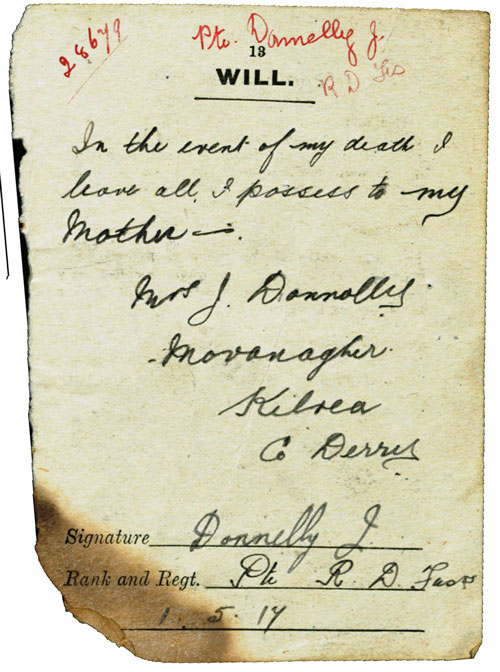 28679
Pte. Donnelly J.
13
R D Fus
WILL.
In the event of my death I
leave all I possess to my
Mother —.
Mrs J. Donnolly
Movanagher
Kilrea
Co Derry
Signature Donnelly J
Rank and Regt. Pte R. D. Fusrs
1. 5. 17